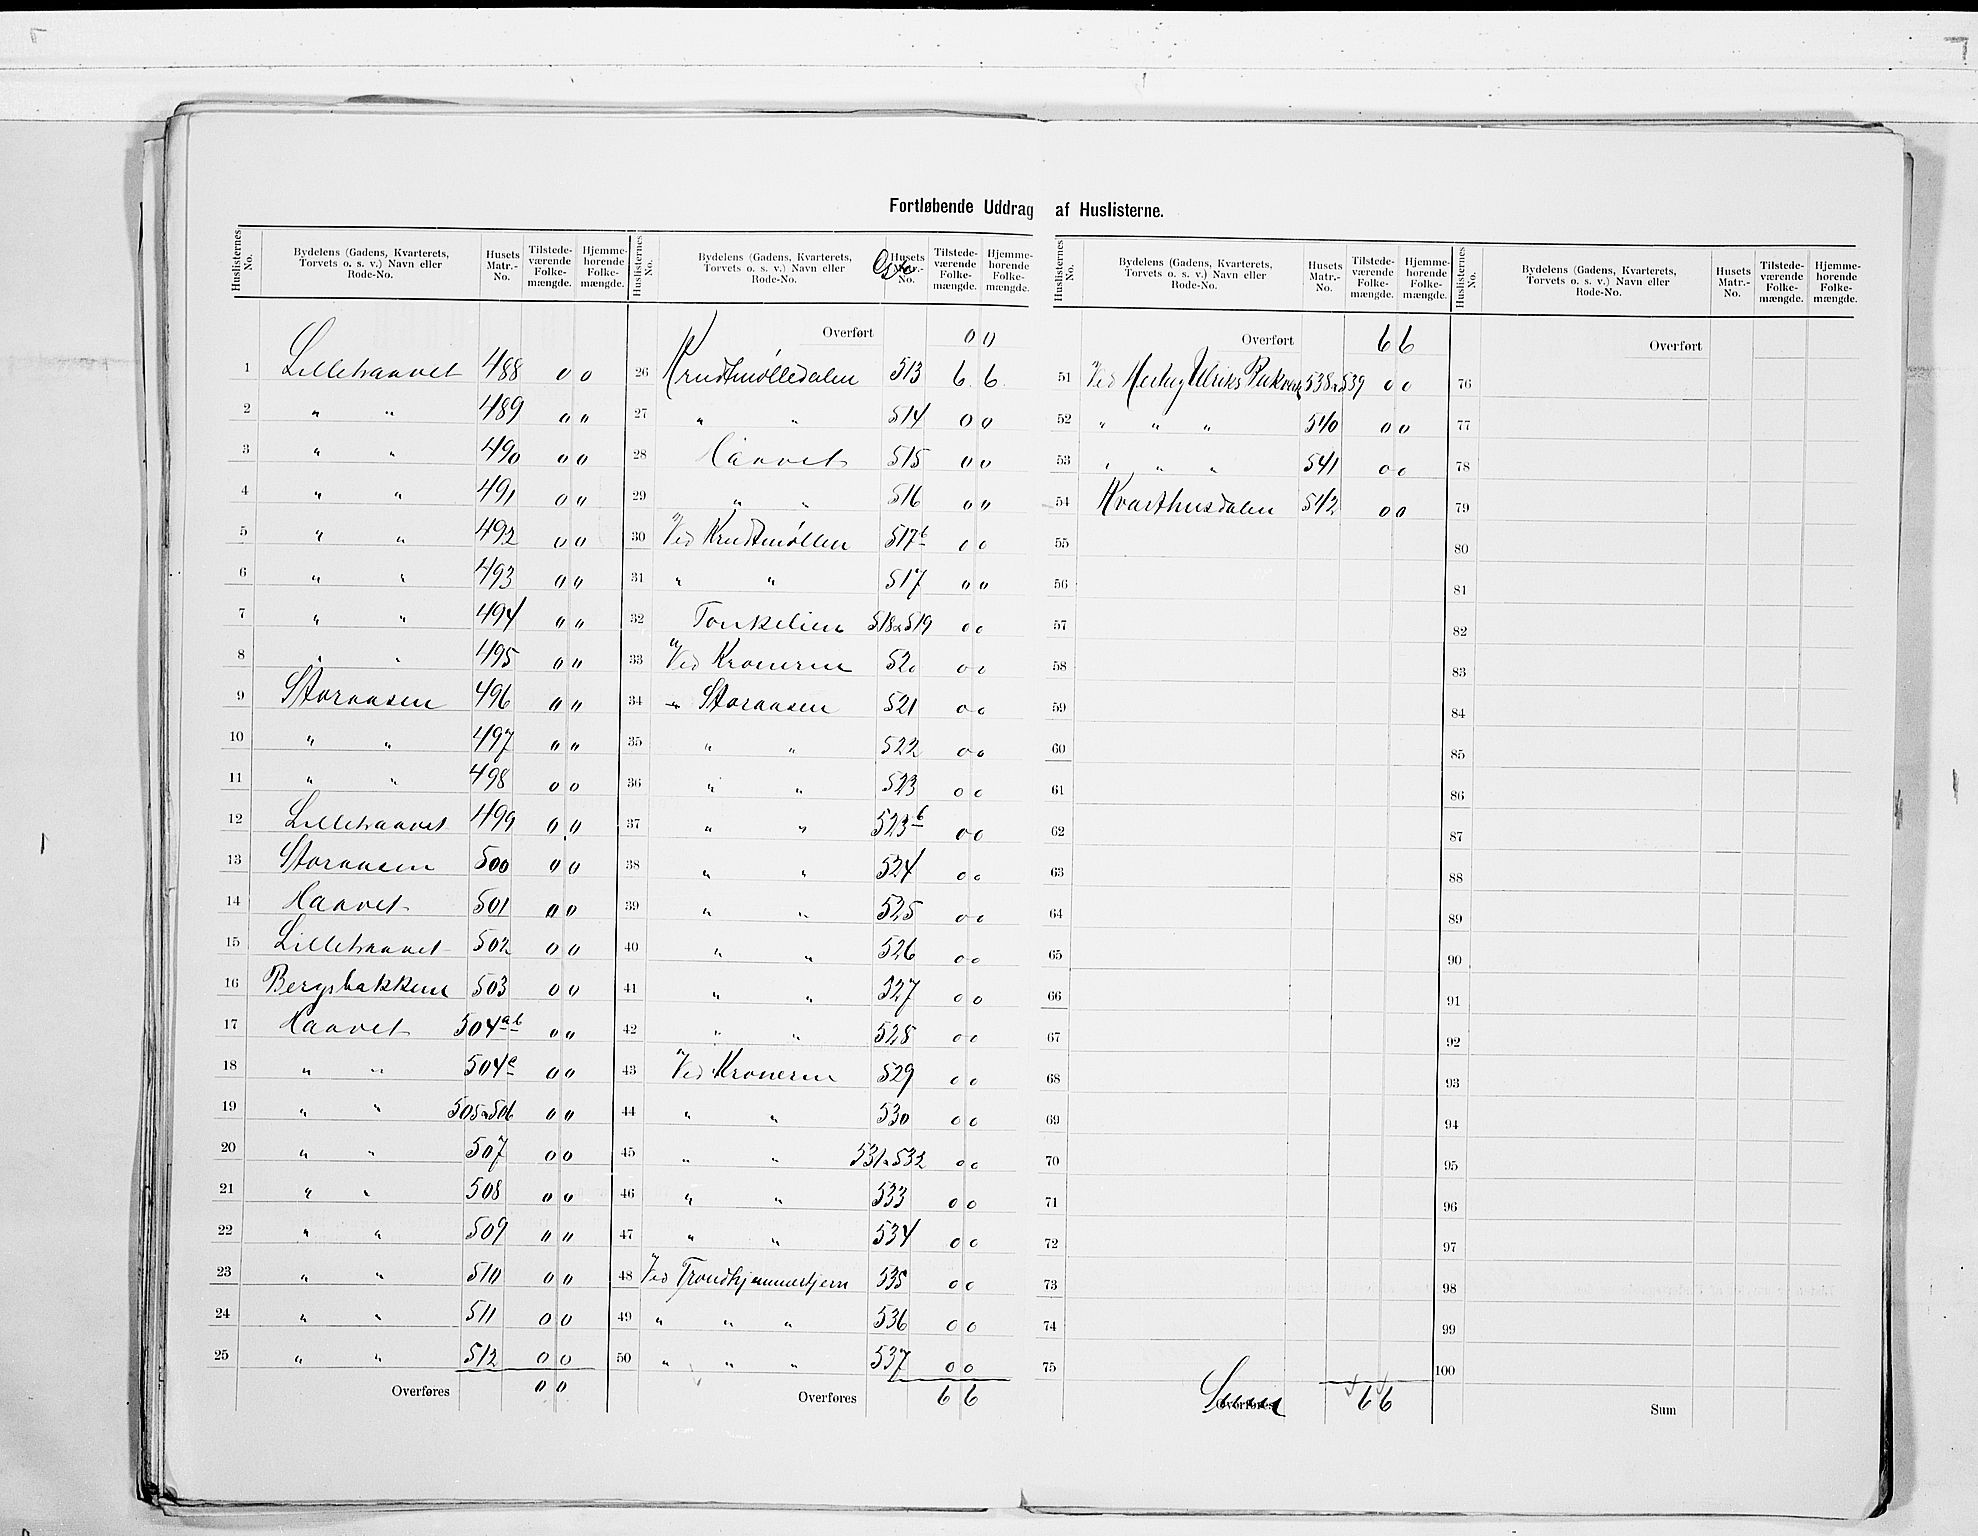 Fortløbende Uddrag af Huslisterne.
Huslisternes No. Bydelens (Gadens, Kvarterets, Torvets o. s. v.) Navn eller Rode-No. Husets Matr.-No. Tilstedeværende Folkemængde. Hjemmehørende Folkemængde.
1 Lillehaavet 488 0 0
2 " " 489 0 0
3 " " 490 0 0
4 " " 491 0 0
5 " " 492 0 0
6 " " 493 0 0
7 " " 494 0 0
8 " " 495 0 0
9 Storaasen 496 0 0
10 " " 497 0 0
11 " " 498 0 0
12 Lillehaavet 499 0 0
13 Storaasen 500 0 0
14 Haavet 501 0 0
15 Lillehaavet 502 0 0
16 Bergsbakken 503 0 0
17 Haavet 504 a b 0 0
18 " " 504 c 0 0
19 " " 505 & 506 0 0
20 " " 507 0 0
21 " " 508 0 0
22 " " 509 0 0
23 " " 510 0 0
24 " " 511 0 0
25 " " 512 0 0
Overføres 0 0
Huslisternes No. Bydelens (Gadens, Kvarterets, Torvets o. s. v.) Navn eller Rode-No. Husets Matr.-No. Tilstedeværende Folkemængde. Hjemmehørende Folkemængde.
Overført 0 0
26 Krudtmølledalen 513 6 6
27 " " 514 0 0
28 Haavet 515 0 0
29 " " 516 0 0
30 Ved Krudtmøllen 517 b 0 0
31 " " 517 0 0
32 Tonkelien 518 & 519 0 0
33 Ved Kronerne 520 0 0
34 " Storaasen 521 0 0
35 " " 522 0 0
36 " " 523 0 0
37 " " 523 b 0 0
38 " " 524 0 0
39 " " 525 0 0
40 " " 526 0 0
41 " " 527 0 0
42 " " 528 0 0
43 Ved Kronerne 529 0 0
44 " " 530 0 0
45 " " 531 & 532 0 0
46 " " 533 0 0
47 " " 534 0 0
48 Ved Trondhjemmertjern 535 0 0
49 " " " 536 0 0
50 " " " 537 0 0
Overføres 6 6
Huslisternes No. Bydelens (Gadens, Kvarterets, Torvets o. s. v.) Navn eller Rode-No. Husets Matr.-No. Tilstedeværende Folkemængde. Hjemmehørende Folkemængde.
Overført 6 6
51 Ved Hertug Ulriks Pukværk 538 & 539 0 0
52 " " " 540 0 0
53 " " " 541 0 0
54 Kvasthusdalen 542 0 0
55
56
57
58
59
60
61
62
63
64
65
66
67
68
69
70
71
72
73
74
75
Overføres Sum 6 6
Huslisternes No. Bydelens (Gadens, Kvarterets, Torvets o. s. v.) Navn eller Rode-No. Husets Matr.-No. Tilstedeværende Folkemængde. Hjemmehørende Folkemængde.
Overført
76
77
78
79
80
81
82
83
84
85
86
87
88
89
90
91
92
93
94
95
96
97
98
99
100
Sum